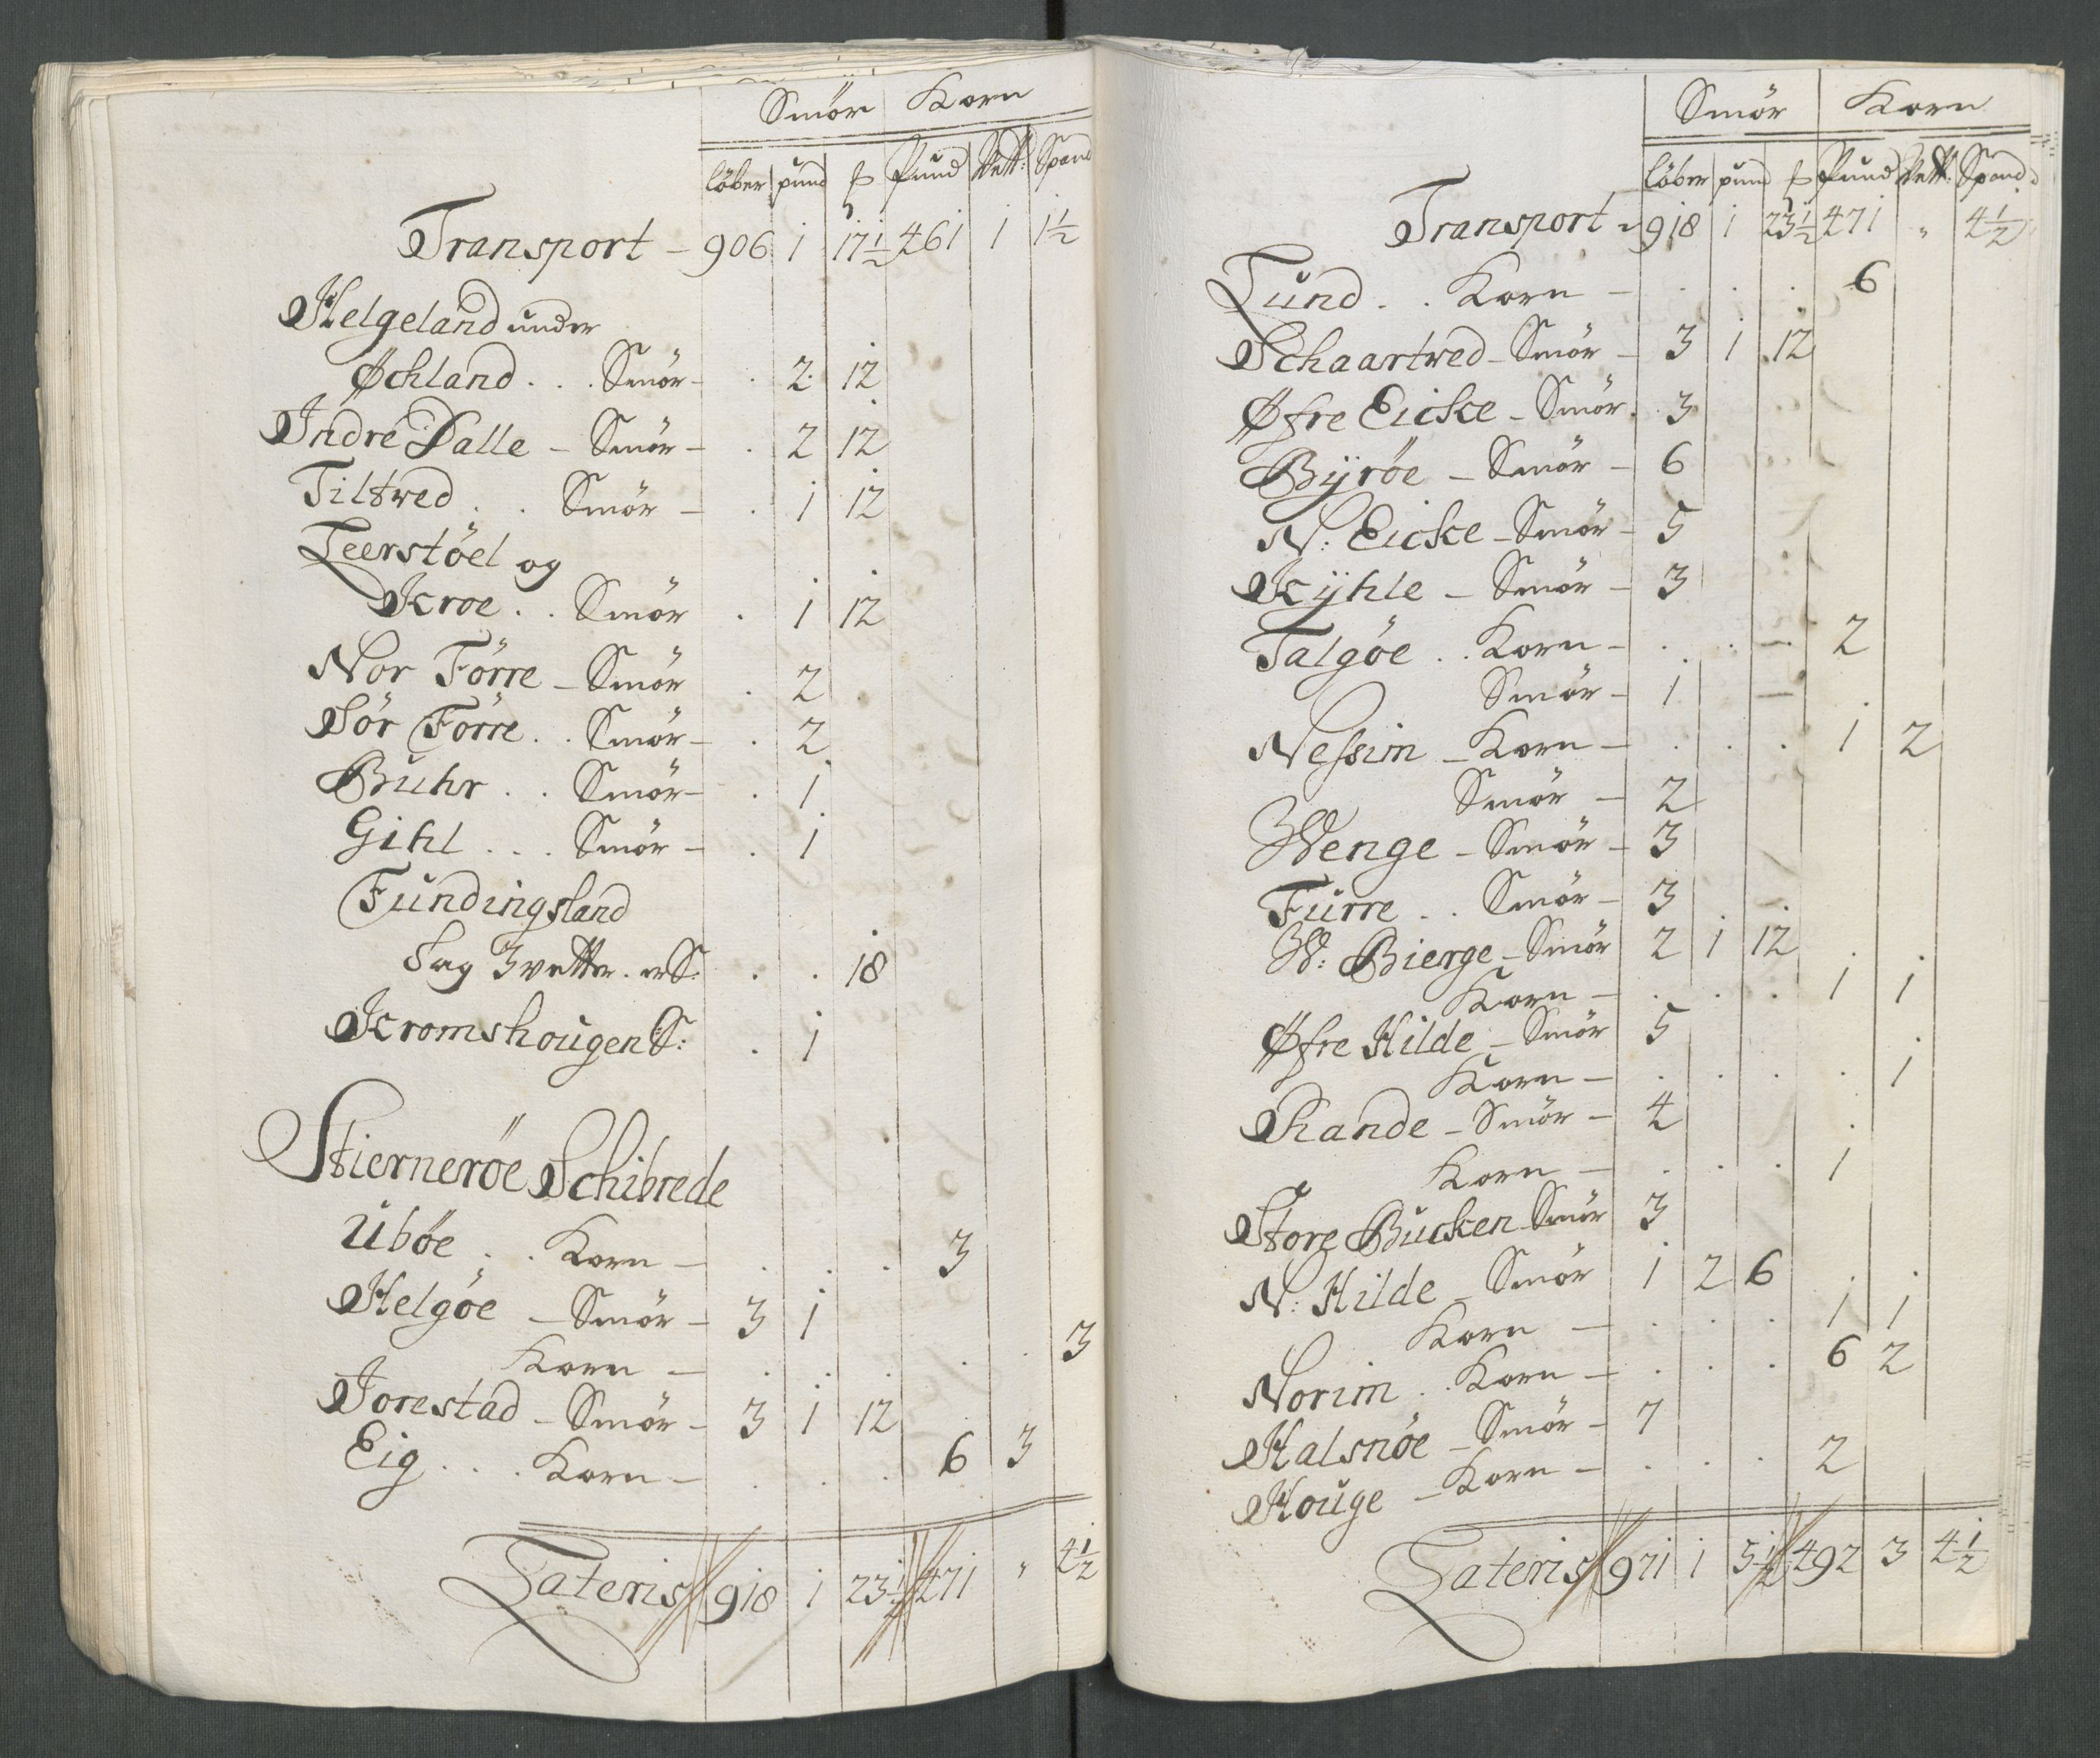 Smör Korn
löber pund ℔ Pund Vett: Spand
Transport - 906 1 17½ 461 1 1½
Helgeland under
Øchland . . . Smör - . 2 12
Indre Dalle - Smör - . 2 12
Tiltved . . Smör - . 1 12
Leerstöel og
Kroe . . Smör . 1 12
Nor Förre - Smör . 2
Sör Förre . . Smör - . 2
Buhr . . Smör - . 1
Gihl . . . Smör - . 1
Fundingsland
Sag 3 vetter. er S: . . 18
Kromshougen S: . 1
Stierneröe Schibrede
Uböe . . Korn - . . . 3
Helgöe - Smör - 3 1
Korn - . . . . . 3
Jorestad - Smör - 3 1 12
Eig . . . Korn - . . . 6 3
Lateris 918 1 23½ 471 " 4½
Smör Korn
löber pund ℔ Pund Vett: Spand
Transport - 918 1 23½ 471 " 4½
Lund . . Korn - . . . 6
Schaartved - Smör - 3 1 12
Øfre Eicke - Smör . 3
Byröe - Smör - 6
N: Eicke - Smör - 5
Kyhle - Smör - 3
Talgöe . . Korn - . . - 2
Smör - 1 -
Nessim - Korn - . . . 1 2
Smör - 2
Wenge - Smör - 3
Furre . . Smör - 3
W: Bierge - Smör 2 1 12
Korn - . . . 1 1
Øfre Hilde - Smör 5
Korn - . . . . 1
Rande - Smör - 4
Korn - . . . 1
Store Bucken Smör 3
N: Hilde - Smör 1 2 6
Korn - . . . 1 1
Norim . . Korn - . . . 6 2
Halsnöe - Smör - 7
Houge - Korn - . . . 2
Lateris 971 1 5½ 492 3 4½